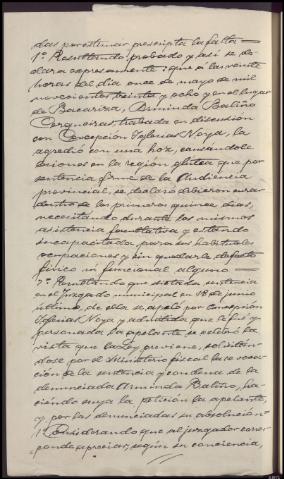 das por estimar prescripta la falta —
1º Resultando: probado y así se de-
clara expresamente: que a las veinte
horas del día once de mayo de mil
novecientos treinta y ocho y en el lugar
de Bacariza, Arminda Batiño
Cerqueiras, trabada en discusión
con Concepción Yglesias Noya, la
agredió con una hoz, causándole
lesiones en la región glútea que por
sentencia firme de la Audiencia
provincial, se declaró debieron curar
dentro de los primeros quince días,
necesitando durante los mismos
asistencia facultativa y estando
incapacitada para sus habituales
ocupaciones y sin quedarle defecto
físico ni funcional alguno —
2º Resultando que dictada sentencia
en el juzgado municipal en 18 de junio
último, de ella se apeló por Concepción
Yglesias Noya y admitida que le fué y
personada la apelante se celebró la
vista que la Ley previene, solicitán-
dose por el Ministerio fiscal la revoca-
ción de la sentencia y condena de la
denunciada Arminda Batiño, ha-
ciendo suya la petición la apelante,
y por las denunciadas su absolución —
1º Considerando que al juzgador corres-
ponde apreciar, según su conciencia,